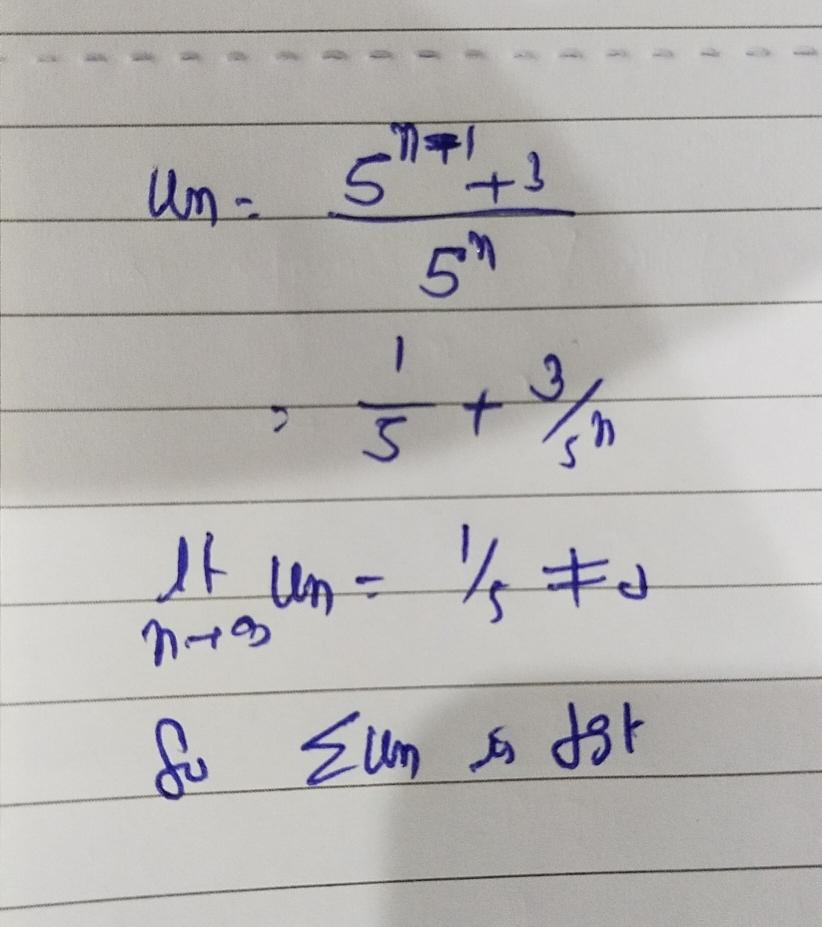 Un = 5^(n-1) + 3 / 5^n
= 1/5 + 3/5^n
lt n→∞ Un = 1/5 ≠ 0
So ΣUn is dgt